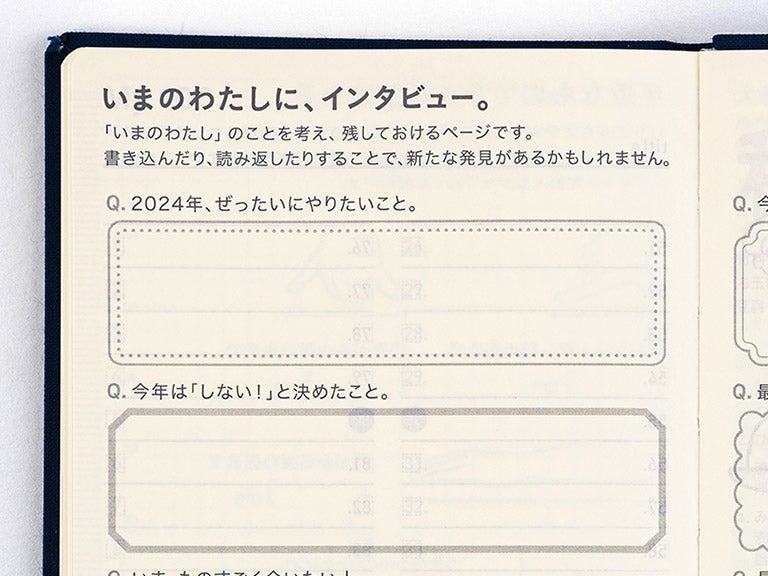 いまのわたしに、インタビュー。
「いまのわたし」のことを考え、残しておけるページです。
書き込んだり、読み返したりすることで、新たな発見があるかもしれません。
Q. 2024年、ぜったいにやりたいこと。
Q. 今年は「しない！」と決めたこと。
Q. いま、ものすごく会いたい！
Q. 今
Q. 最